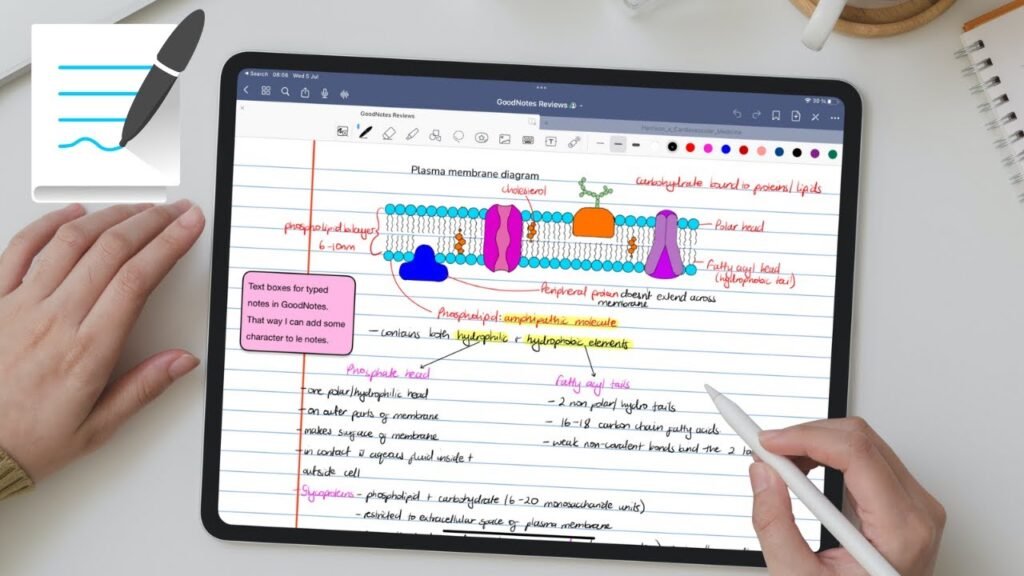 Search 08:06 Wed 5 Jul
30 %
GoodNotes Reviews
GoodNotes Reviews
Plasma membrane diagram
cholesterol
carbohydrate bound to proteins/lipids
phospholipid bilayer
6-10nm
Polar head
Fatty acyl head
(hydrophobic tail)
Peripheral protein doesnt extend across
membrane
Text boxes for typed
notes in GoodNotes.
That way I can add some
character to le notes.
Phospholipid: amphipathic molecule
- contains both hydrophilic + hydrophobic elements
Phosphate head
- one polar/hydrophilic head
- on outer parts of membrane
- makes surface of membrane
- in contact w aqueous fluid inside +
outside cell
Fatty acyl tails
- 2 non polar/hydro tails
- 16-18 carbon chain fatty acids
- weak non-covalent bonds bind the 2
Glycoproteins - phospholipid + carbohydrate (6-20 monosaccharide units)
- restricted to extracellular space of plasma membrane